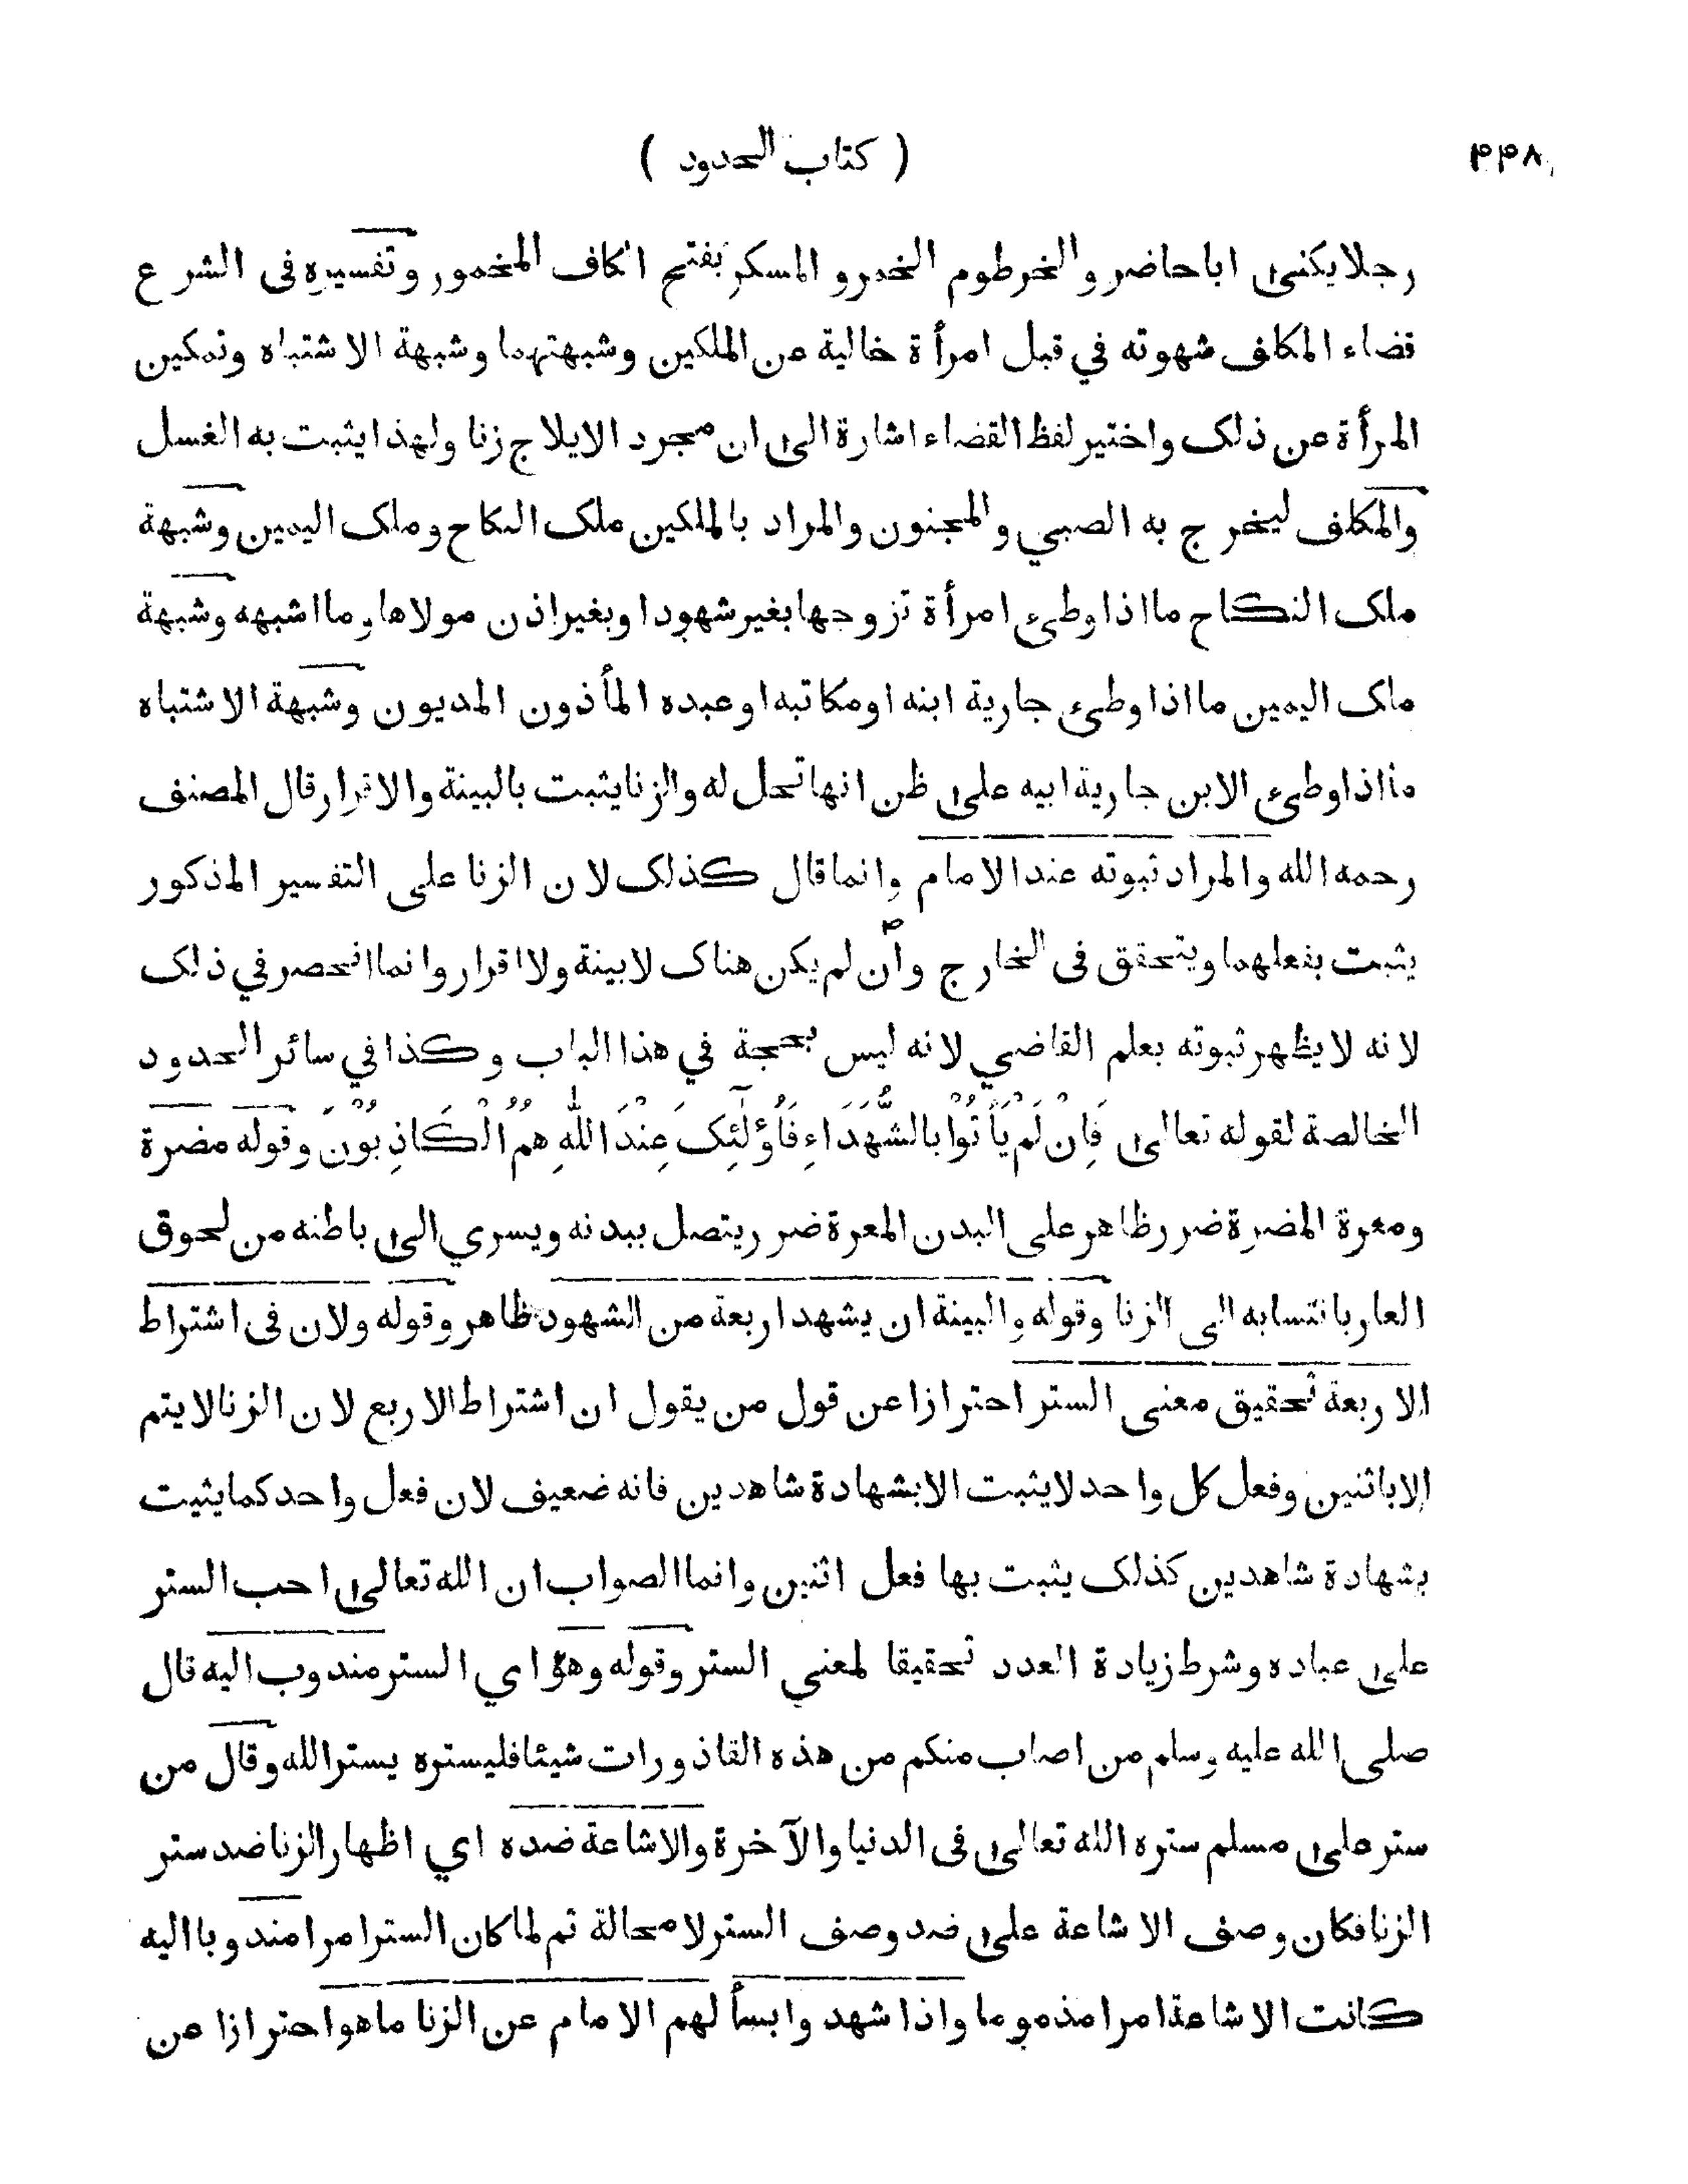 ۴۴۸
( كتاب الحدود )
رجلا يكنى ابا حاضر والخرطوم الخمر و المسكر بفتح الكاف المخمور وتفسيره فى الشرع
قضاء المكلف شهوته في قبل امرأة خالية عن الملكين وشبهتهما وشبهة الاشتباه وتمكين
المرأة عن ذلك واختير لفظ القضاء اشارة الى ان مجرد الايلاج زنا ولهذا يثبت به الغسل
والمكلف ليخرج به الصبي والمجنون والمراد بالملكين ملك النكاح وملك اليمين وشبهة
ملك النكاح ما اذا وطىء امرأة تزوجها بغير شهود او بغير اذن مولاها وما اشبهه وشبهة
ملك اليمين ما اذا وطىء جارية ابنه او مكاتبه او عبده المأذون المديون وشبهة الاشتباه
ما اذا وطىء الابن جارية ابيه على ظن انها تحل له والزنا يثبت بالبينة والاقرار قال المصنف
رحمه الله والمراد ثبوته عند الامام وانما قال كذلك لان الزنا على التفسير المذكور
يثبت بفعلهما ويتحقق فى الخارج وان لم يكن هناك لا بينة ولا اقرار وانما انحصر في ذلك
لانه لا يظهر ثبوته بعلم القاضي لانه ليس بحجة في هذا الباب وكذا في سائر الحدود
الخالصة لقوله تعالى فَاِنْ لَمْ يَأْتُوْا بِالشُّهَدَاءِ فَاُوْلٰئِكَ عِنْدَ اللّٰهِ هُمُ الْكَاذِبُوْنَ وقوله مضرة
ومعرة المضرة ضرر ظاهر على البدن المعرة ضرر يتصل ببدنه ويسري الى باطنه من لحوق
العار بانتسابه الى الزنا وقوله والبينة ان يشهد اربعة من الشهود ظاهر وقوله ولان فى اشتراط
الاربعة تحقيق معنى الستر احترازا عن قول من يقول ان اشتراط الاربع لان الزنا لا يتم
الا باثنين وفعل كل واحد لا يثبت الا بشهادة شاهدين فانه ضعيف لان فعل واحد كما يثبت
بشهادة شاهدين كذلك يثبت بها فعل اثنين وانما الصواب ان الله تعالى احب الستر
على عباده وشرط زيادة العدد تحقيقا لمعنى الستر وقوله وهو اي الستر مندوب اليه قال
صلى الله عليه وسلم من اصاب منكم من هذه القاذورات شيئا فليستره يستر الله وقال من
ستر على مسلم ستره الله تعالى فى الدنيا والآخرة والاشاعة ضده اي اظهار الزنا ضد ستر
الزنا فكان وصف الاشاعة على ضد وصف الستر لا محالة ثم لما كان الستر امرا مندوبا اليه
كانت الاشاعة امرا مذموما واذا شهدوا يسأ لهم الامام عن الزنا ما هو احترازا عن